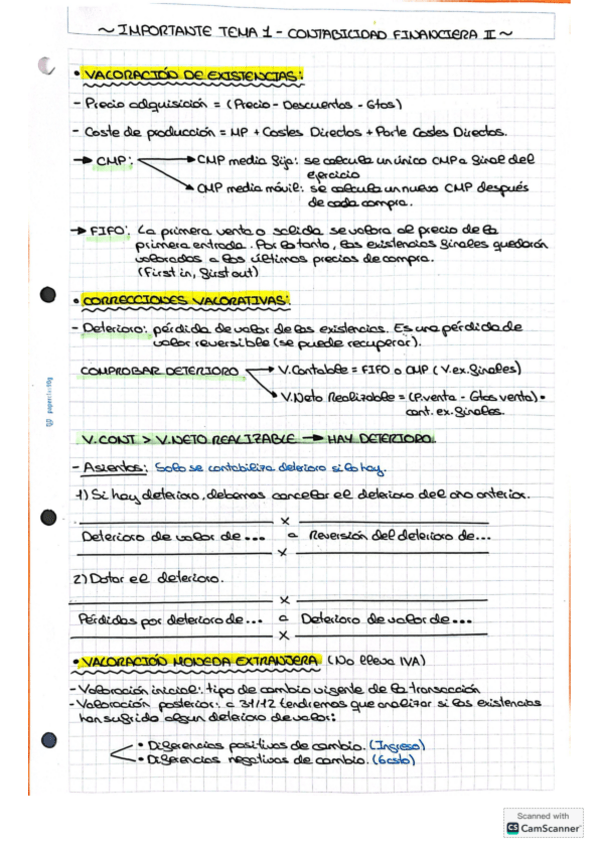 ~ IMPORTANTE TEMA 1 - CONTABILIDAD FINANCIERA II ~
• VALORACIÓN DE EXISTENCIAS:
- Precio adquisición = (Precio - Descuentos - Gtos)
- Coste de producción = MP + Costes Directos + Parte Costes Directos.
→ CMP: → CMP media fija: se calcula un único CMP a final del
ejercicio
→ CMP media móvil: se calcula un nuevo CMP después
de cada compra.
→ FIFO: La primera venta o salida se valora al precio de la
primera entrada. Por lo tanto, las existencias finales quedarán
valoradas a los últimos precios de compra.
(First in, first out)
• CORRECCIONES VALORATIVAS:
- Deterioro: pérdida de valor de las existencias. Es una pérdida de
valor reversible (se puede recuperar).
COMPROBAR DETERIORO → V.Contable = FIFO o CMP (V.ex.finales)
→ V.Neto Realizable = (P.venta - Gtos venta) •
cont. ex. finales.
V.CONT > V.NETO REALIZABLE → HAY DETERIORO.
- Asientos: Solo se contabiliza deterioro si lo hay.
1) Si hay deterioro, debemos cancelar el deterioro del año anterior.
x
Deterioro de valor de ... a Reversión del deterioro de...
x
2) Dotar el deterioro.
x
Pérdidas por deterioro de... a Deterioro de valor de...
x
• VALORACIÓN MONEDA EXTRANJERA (No lleva IVA)
- Valoración inicial: tipo de cambio vigente de la transacción
- Valoración posterior: a 31/12 tendremos que analizar si las existencias
han sufrido algun deterioro de valor:
• Diferencias positivas de cambio. (Ingreso)
• Diferencias negativas de cambio. (Gasto)
Scanned with
CS CamScanner